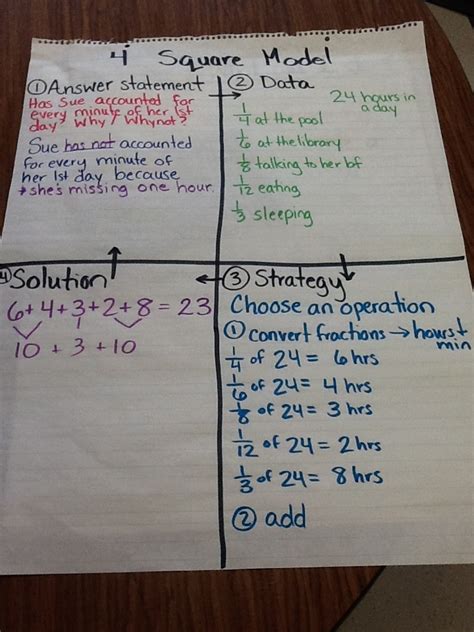 4 Square Model
① Answer statement
Has Sue accounted for
every minute of her 1st
day? Why / Whynot?
Sue has not accounted
for every minute of
her 1st day because
*she's missing one hour.
② Data
24 hours in
a day
1/4 at the pool
1/6 at the library
1/8 talking to her bf
1/12 eating
1/3 sleeping
③ Strategy
Choose an operation
① convert fractions → hours +
min
1/4 of 24 = 6 hrs
1/6 of 24 = 4 hrs
1/8 of 24 = 3 hrs
1/12 of 24 = 2 hrs
1/3 of 24 = 8 hrs
② add
④ Solution
6+4+3+2+8 = 23
10 + 3 + 10